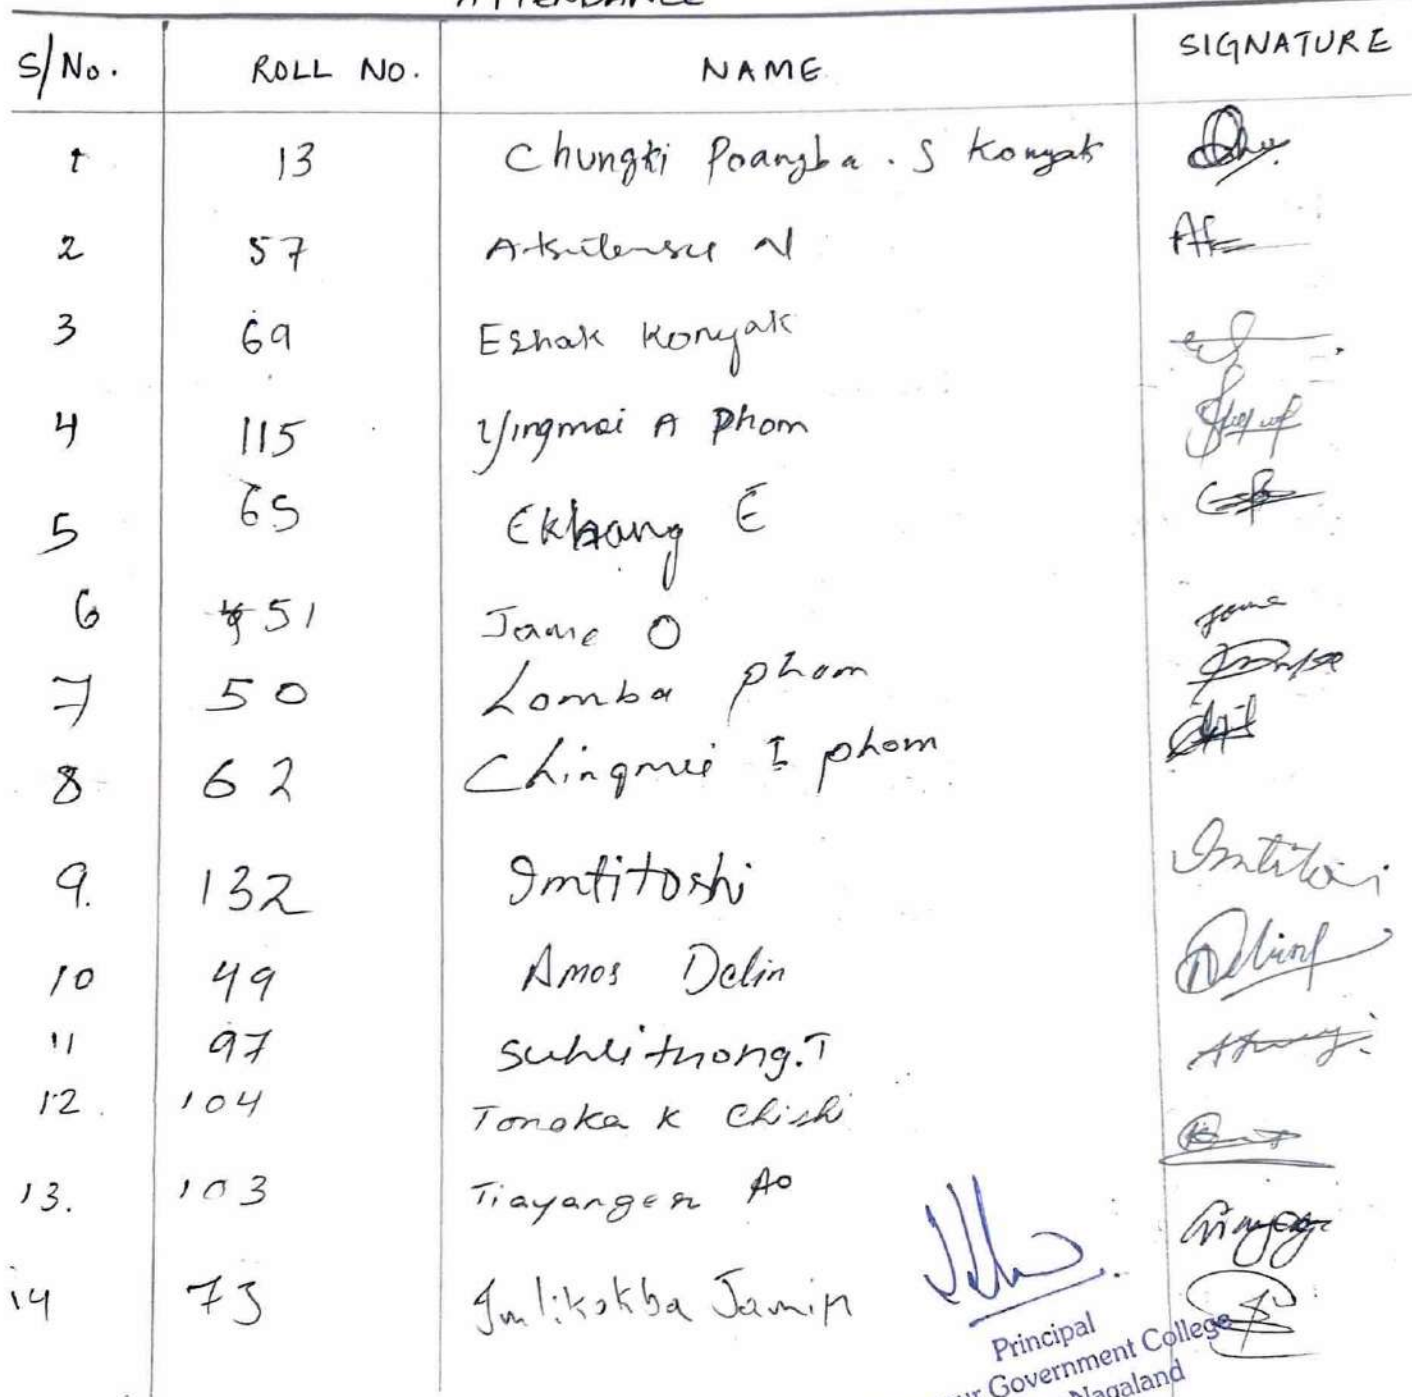 ATTENDANCE
S/No. ROLL NO. NAME SIGNATURE
1 13 Chungki Poangba . S Konyak
2 57 N
3 69 Eshak Konyak
4 115 Yingmei A Phom
5 65 Ekhang E
6 51 Jame O Jame
7 50 Lomba phom
8 62 Chingmei I phom
9. 132 Imtitoshi
10 49 Amos Delin
11 97 Suhlithong.T
12. 104 Tonoka K Chishi
13. 103 Tiayanger Ao
14 73 Imlikokba Jamir
Principal
Government College
Nagaland